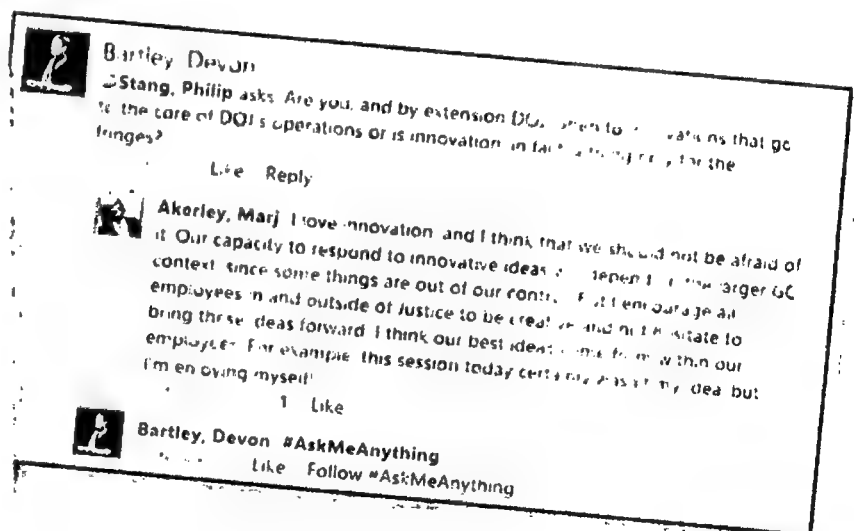 Bartley Devon
Stang, Philip asks Are you, and by extension DOJ, open to innovations that go
to the core of DOJ's operations or is innovation in fact a thing only for the
fringes?
Like Reply
Akerley, Marj I love innovation and I think that we should not be afraid of
it. Our capacity to respond to innovative ideas depend the larger GC
context since some things are out of our But I encourage all
employees in and outside of Justice to be creative and not hesitate to
bring these ideas forward I think our best ideas come from within our
employees For example this session today certainly my idea but
I'm enjoying myself!
1 Like
Bartley, Devon #AskMeAnything
Like Follow #AskMeAnything